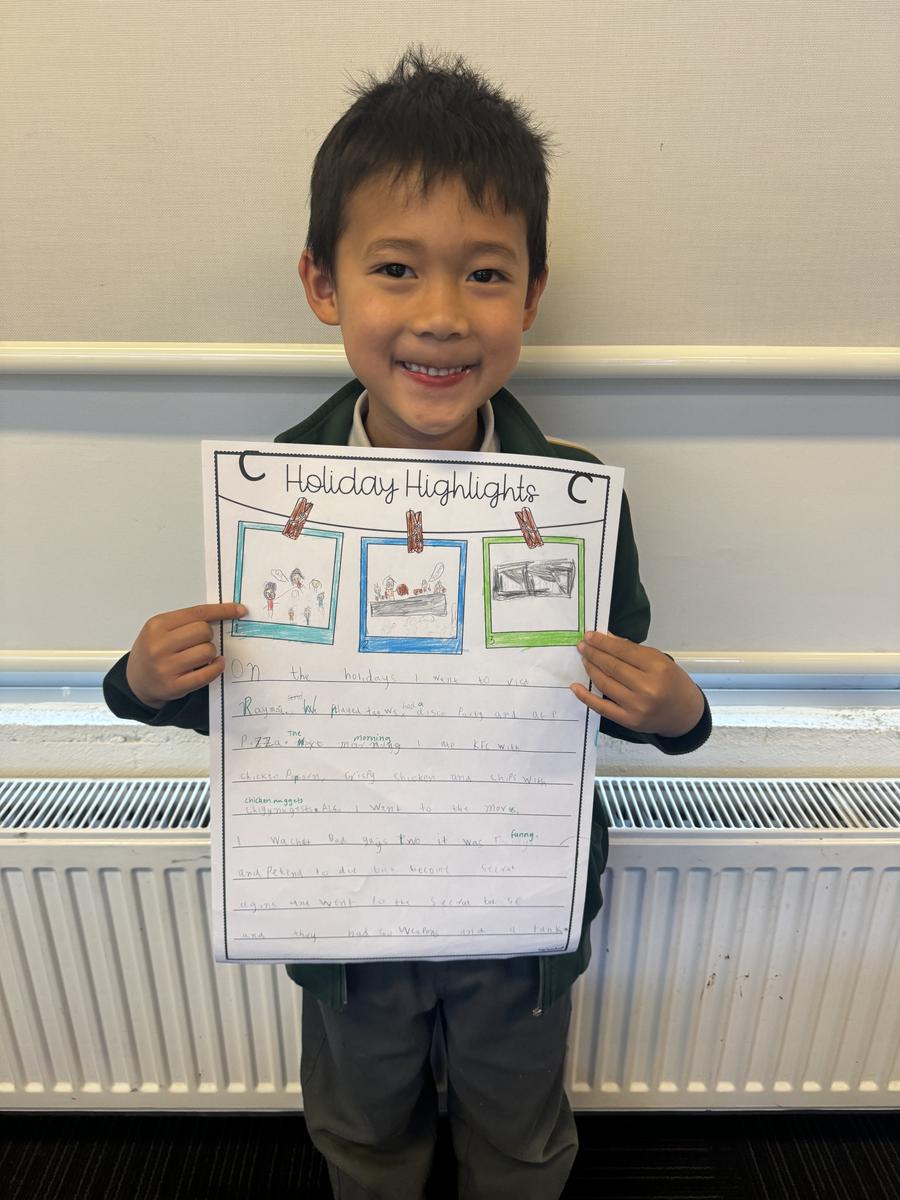 C Holiday Highlights C
1 2 3
On the holidays I went to vist
Rayma. and We played tag We had a disco Party and ate
Pizza. The Next morning I me KFC with
chicken Pporn, Crispy chicken and chips with
chicken nuggets
chigynugests. ALs I went to the movs
I wachet Bad guys two it was funny.
and Petend to die but become Secret
agins and went to the Secret base
and they had Weapons and a tank.